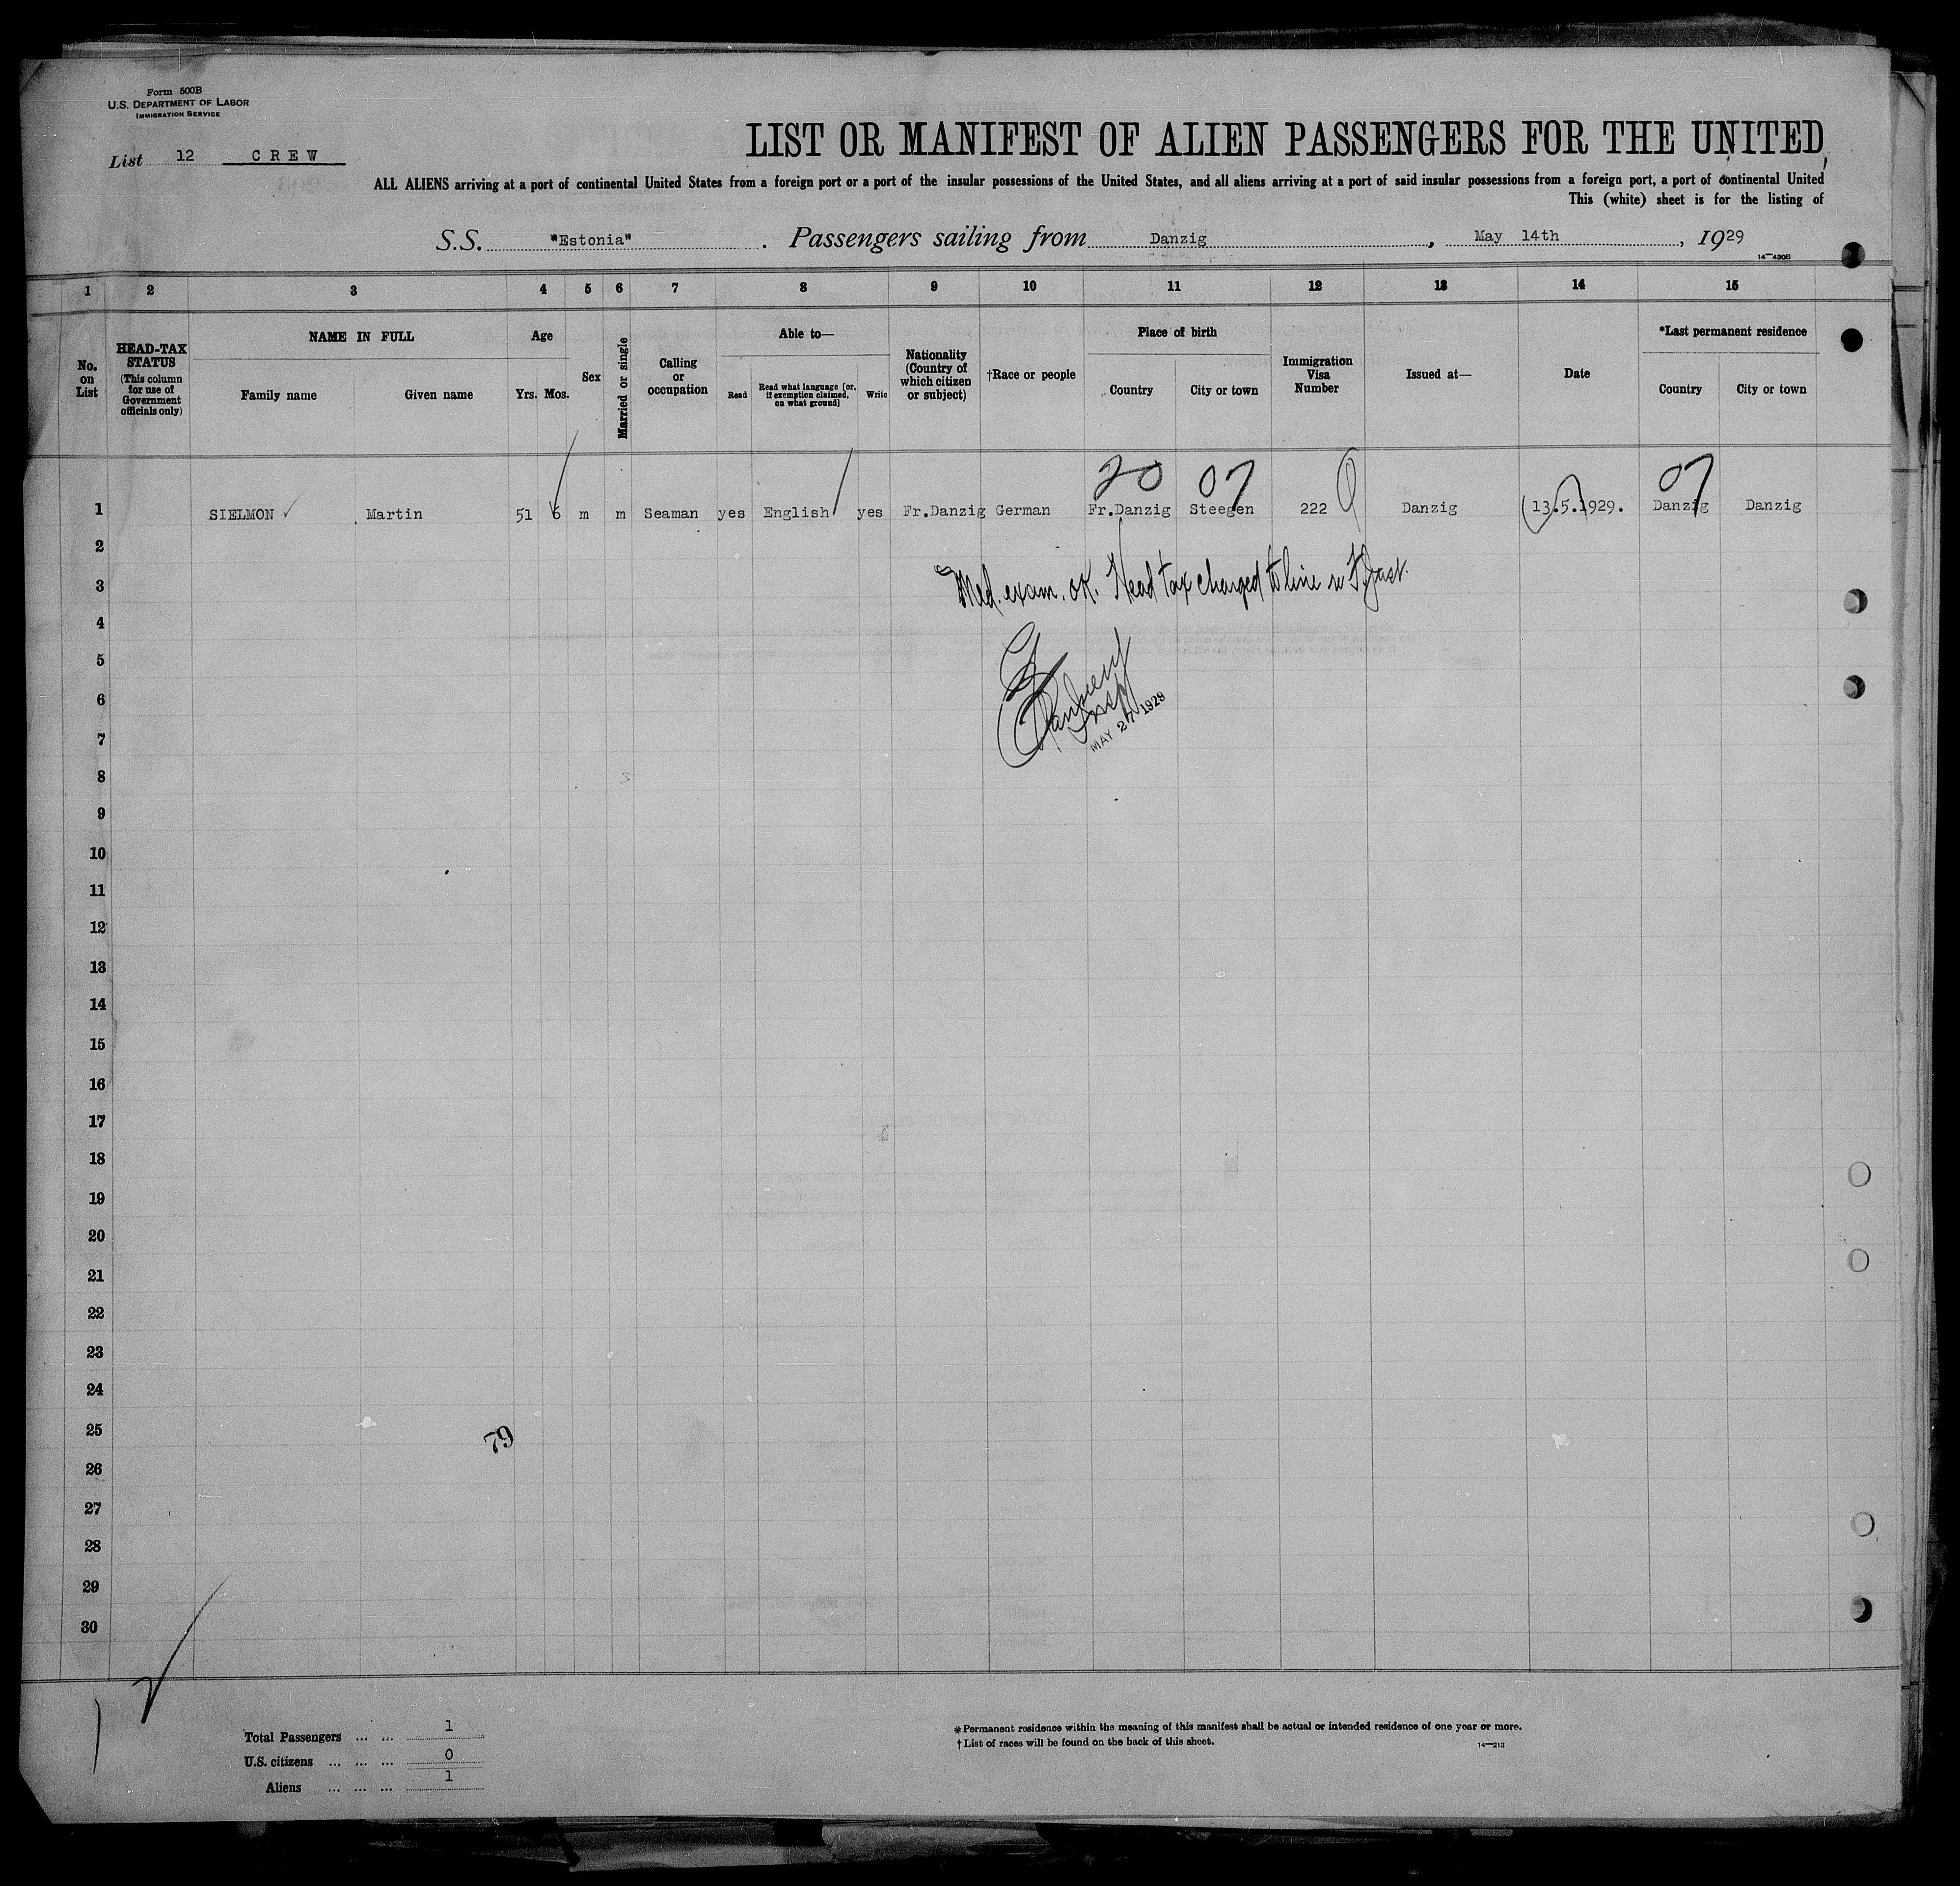 Form 500B
U.S. DEPARTMENT OF LABOR
IMMIGRATION SERVICE
List 12 CREW
LIST OR MANIFEST OF ALIEN PASSENGERS FOR THE UNITED
ALL ALIENS arriving at a port of continental United States from a foreign port or a port of the insular possessions of the United States, and all aliens arriving at a port of said insular possessions from a foreign port, a port of continental United
This (white) sheet is for the listing of
S.S. "Estonia" . Passengers sailing from Danzig , May 14th , 1929
14—430B
1 2 3 4 5 6 7 8 9 10 11 12 13 14 15
No. on List
HEAD-TAX STATUS
(This column for use of Government officials only)
NAME IN FULL
Family name Given name
Age
Yrs. Mos.
Sex
Married or single
Calling or occupation
Able to—
Read
Read what language [or, if exemption claimed, on what ground]
Write
Nationality (Country of which citizen or subject)
†Race or people
Place of birth
Country City or town
Immigration Visa Number
Issued at—
Date
*Last permanent residence
Country City or town
20 07 07
1 SIELMON Martin 51 6 m m Seaman yes English yes Fr.Danzig German Fr.Danzig Steegen 222 Danzig (13.5.1929. Danzig Danzig
2
3 Med. exam. ok. Head tax charged to line
4
5
6
7 Insp MAY 27 1929
8
9
10
11
12
13
14
15
16
17
18
19
20
21
22
23
24
25 79
26
27
28
29
30
Total Passengers ... ... 1
U.S. citizens ... ... ... 0
Aliens ... ... ... 1
*Permanent residence within the meaning of this manifest shall be actual or intended residence of one year or more.
†List of races will be found on the back of this sheet.
14—213